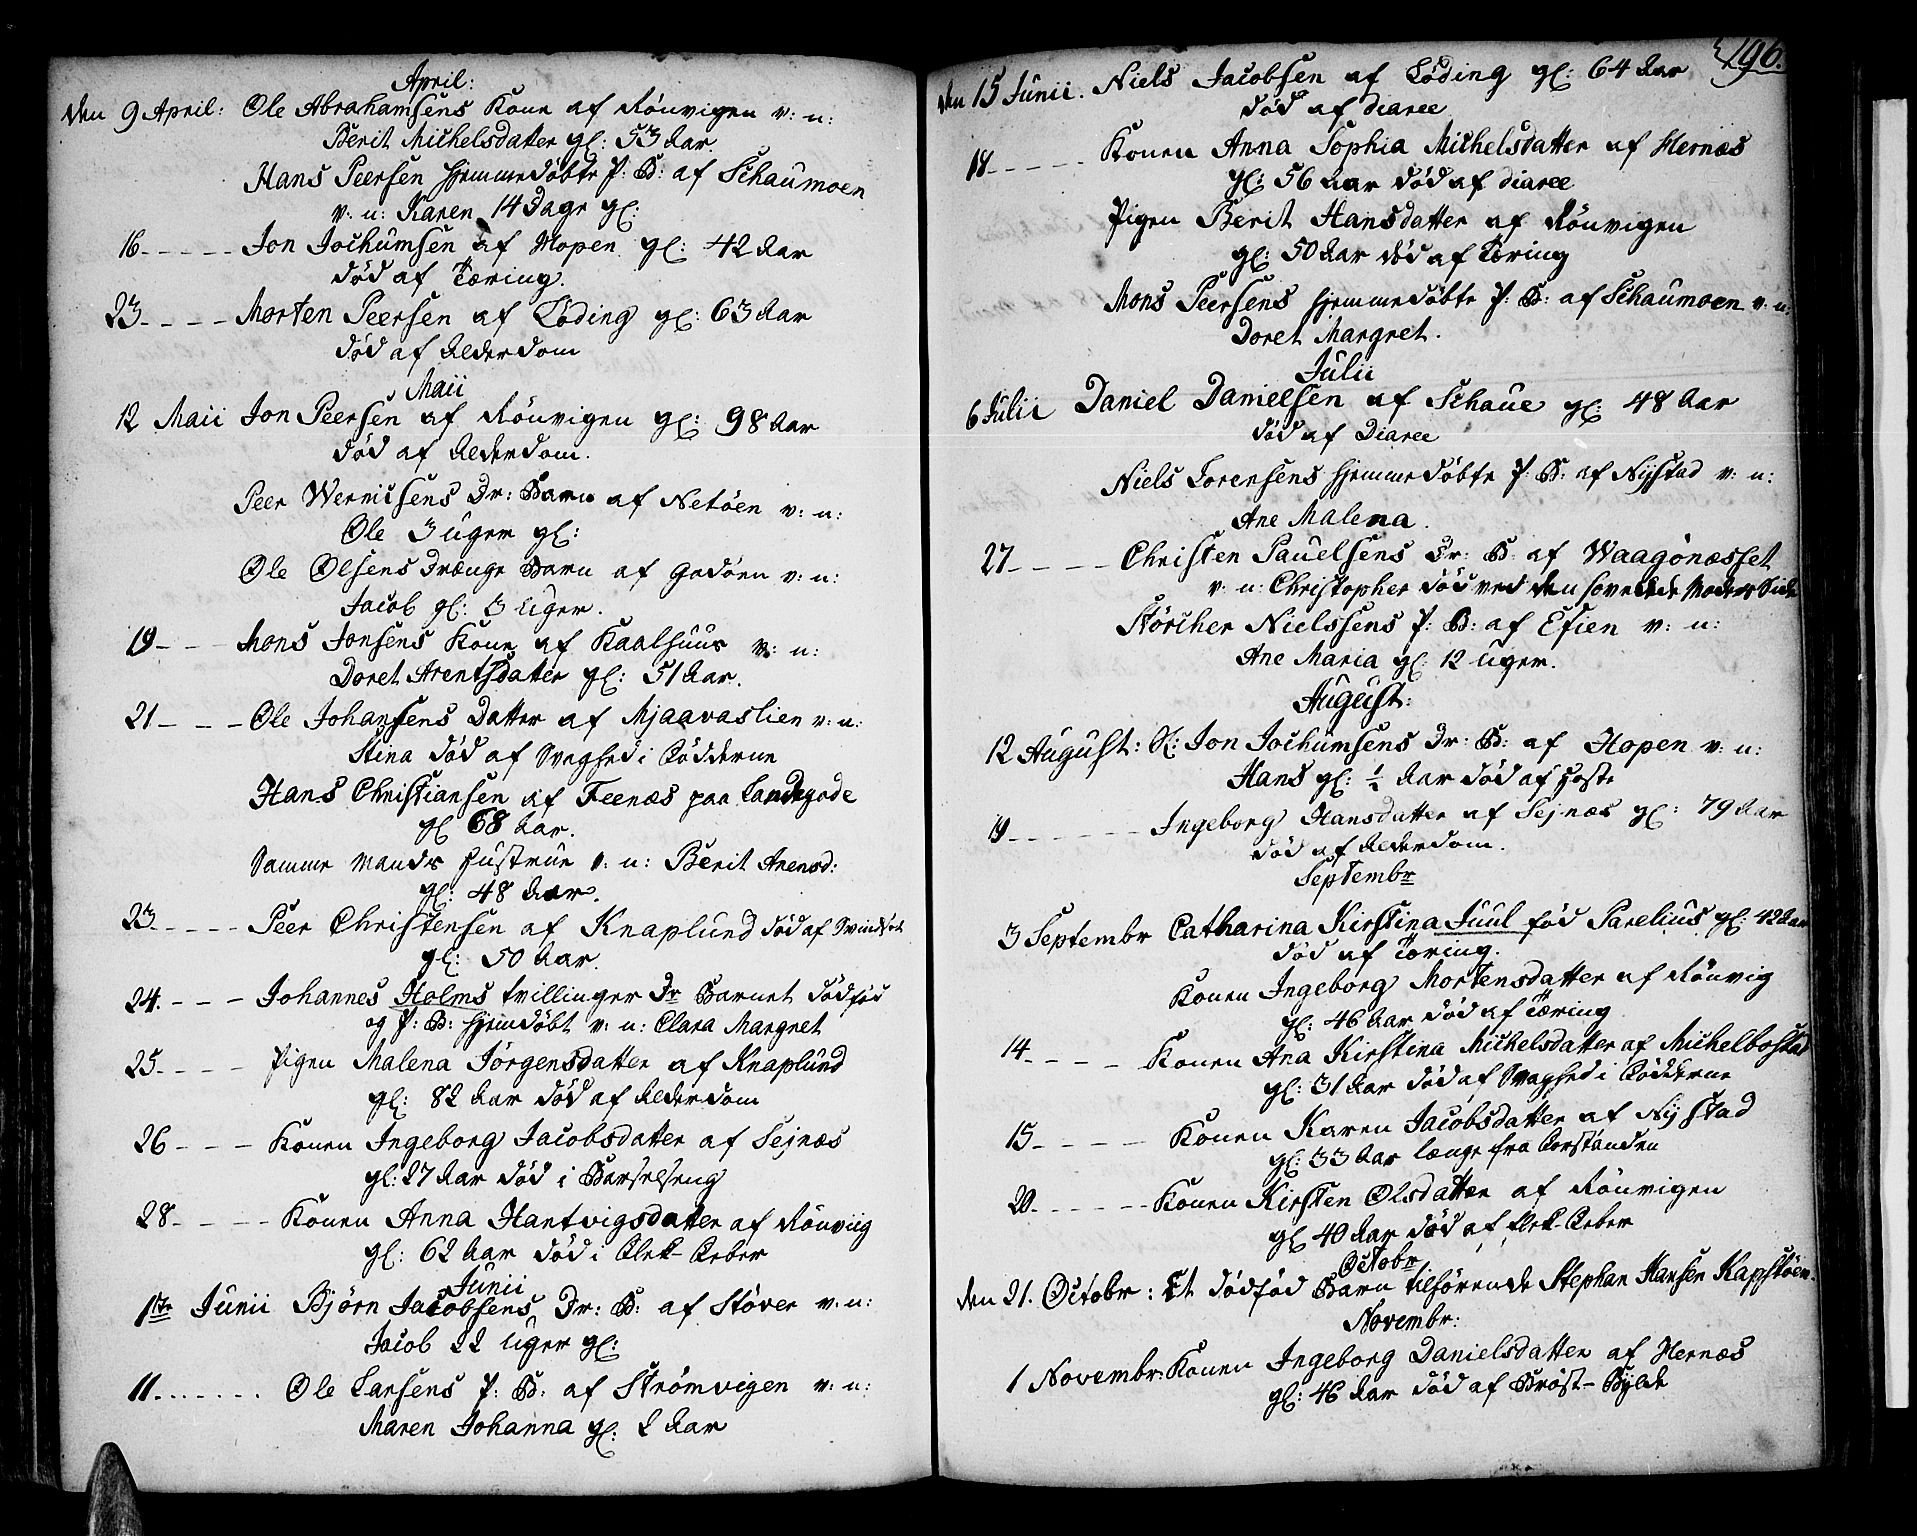 April:
den 9 April: Ole Abrahamsens Kone af Rönvigen v: n:
Berit Michelsdatter gl: 53 Aar.
Hans Peersen hjemmedöbte P: B: af Schaumoen
v: n: Karen 14 Dage gl:
16 - - - - - Jon Jochumsen af Hopen gl: 42 Aar
död af Tæring.
23 - - - - Morten Peersen af Löding gl: 63 Aar
död af Alderdom
Maii
12 Maii Jon Peersen af Rönvigen gl: 98 Aar
död af Alderdom.
Peer Wernicsens Dr: Barn af Netöen v: n:
Ole 3 uger gl:
Ole Olsens Drænge Barn af Godöen v: n:
Jacob gl: 3 Uger.
19 - - - Mons Jonsens Kone af Kaalhuus v: n:
Doret Arentsdatter gl: 51 Aar.
21 - - - Ole Johansens Datter af Mjaavaslien v: n:
Stina död af Svaghed i Lödderne
Hans Christiansen af Feenæs paa Landegode
gl 68 Aar.
Samme Mands Hustrue v: n: Berit Arensd:
gl: 48 Aar.
23 - - - - - Peer Christensen af Knaplund död af Svindsot
gl: 50 Aar.
24. - - - Johannes Holms tvillinger Dr Barnet dödföd
og P: B: hjemdöbt v: n: Clara Margret
25 - - - - Pigen Malena Jörgensdatter af Knaplund
gl: 82 Aar död af Alderdom
26 - - - Konen Ingeborg Jacobsdatter af Sejnæs
gl: 27 Aar död i Barselseng
28 - - - - Konen Anna Hantvigsdatter af Rönviig
gl: 62 Aar död i Flek-Feber
Junii
1ste Junii Björn Jacobsens Dr: B: af Stöver v: n:
Jacob 22 Uger gl:
11 . . . . . . . Ole Larsens P: B: af Strömvigen v: n:
Maren Johanna gl: 2 Aar
196.
den 15 Junii. Niels Jacobsen af Löding gl: 64 Aar
död af Diaree
18 - - - - - Konen Anna Sophia Michelsdatter af Hernæs
gl: 56 Aar död af Diaree
Pigen Berit Hansdatter af Rönvigen
gl: 50 Aar död af Tæring
Mons Peersens hjemmedöbte P: B: af Schaumoen v: n:
Doret Margret.
Julii
6 Julii Daniel Danielsen af Schaue gl: 48 Aar
död af Diaree
Niels Lorensens hjemmedöbte P: B: af Nijstad v: n:
Ane Malena.
27 - - - - - Christen Pauelsens Dr: B: af Waagönæsset
v: n: Christopher död ved den sovende Moders Side
Störcher Nielssens P: B: af Efien v: n:
Ane Maria gl: 12 Uger.
August:
12 August: Jon Jochumsens Dr: B: af Hopen v: n:
Hans gl: 1/2 Aar död af Hoste
19 - - - - - - - Ingeborg Hansdatter af Sejnæs gl: 79 Aar
död af Alderdom.
Septembr
3 Septembr Catharina Kirstina Juul föd Parelius gl: 42 Aar
död af Tæring.
Konen Ingeborg Mortensdatter af Rönvig
gl: 46 Aar död af Tæring
14 - - - - Konen Ana Kirstina Michelsdatter af Michelbostad
gl: 31 Aar död af Svaghed i Lödderne
15 - - - - - Konen Karen Jacobsdatter af Nijstad
gl: 33 Aar længe fra Forstanden
20 - - - - - - Konen Kirsten Olsdatter af Rönvigen
gl 40 Aar död af Flek-Feber
Octobr
den 21. Octobr: Et dödföd Barn tilhörende Stephan Hansen Kapstöen.
Novembr:
1 Novembr: Konen Ingeborg Danielsdatter af Hernæs
gl: 46 Aar död af Bröst-Bylde